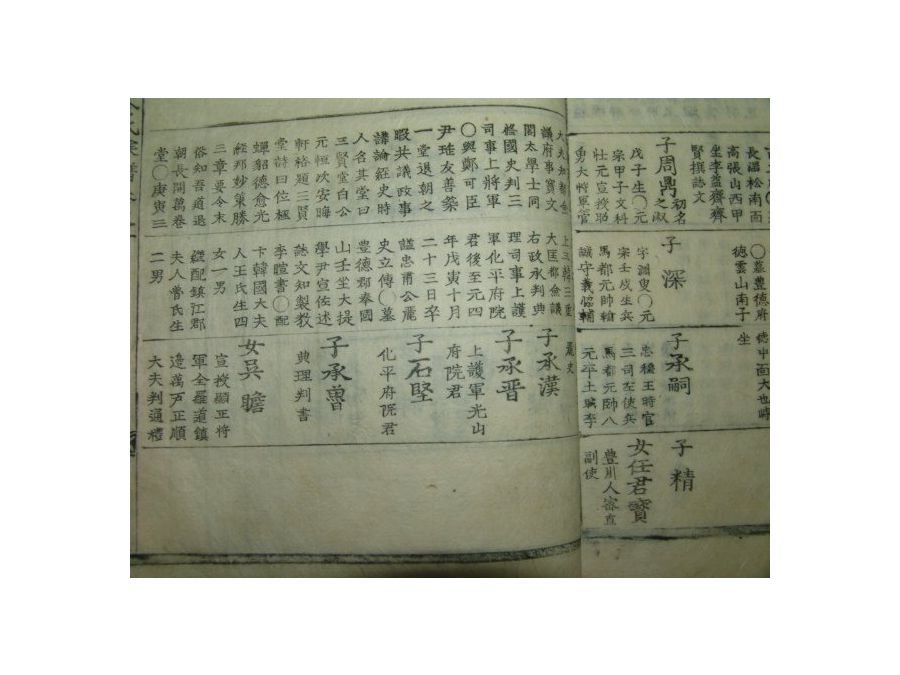 長湍松南面
高張山西甲
坐李益齋齊
賢撰誌文
子周鼎 初名之淑
戊子生〇元
宗甲子文科
壯元宣授昭
勇大將軍官
〇墓豊德府
德雲山南子
子深
字淵叟〇元
宗壬戌生兵
馬都元帥翰
德中面大也峙
坐
子承嗣
忠穆王時官
三司左使兵
馬都元帥八
元卒土興李
子精
女任君寶
豊川人審直
副使
議府事寶文
閣太學士同
修國史判三
司事上將軍
〇與鄭可臣
尹珤友善築
一堂退朝之
暇共議政事
講論經史時
人名其堂曰
三賢堂白公
元恒次安晦
軒裕題三賢
堂詩曰位極
蟬貂德愈光
三章要令末
俗知吾道退
朝長開萬卷
堂〇庚寅三
上三韓三重
大匡都僉議
右政丞判典
理司事上護
軍化平府院
君後至元四
年戊寅十月
二十三日卒
諡忠肅公麗
史立傳〇墓
豊德郡奉國
山壬坐大提
學尹宣佐述
誌文知製教
李暄書〇配
卞韓國大夫
人王氏生四
女一男
継配鎮江郡
夫人曺氏生
二男
麗史
子承漢
子承晋
上護軍光山
府院君
子石堅
化平府院君
子承魯
典理判書
女吳瞻
宣授顯正將
軍全羅道鎮
邊萬戶正順
大夫判通禮